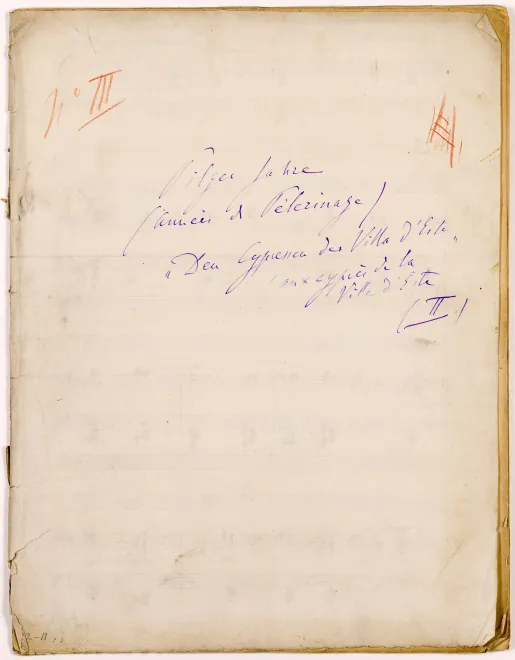 N° III
Pilger Jahre
(Années de Pélerinage)
„Den Cypressen der Villa d'Este„
aux cyprès de la
Villa d'Este
(II)